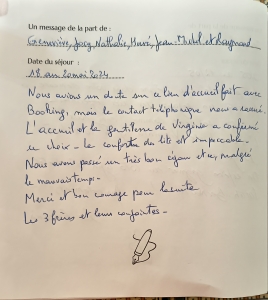 Un message de la part de :
Geneviève, Jacq, Nathalie, Hervé, Jean-Michel et Raymond
Date du séjour :
18 au 20 mai 2024
Nous avions un doute sur ce lieu d'accueil fait avec
Booking, mais le contact téléphonique nous a rassuré.
L'accueil et la gentillesse de Virginie a confirmé
ce choix - le confort du lits est impeccable.
Nous avons passé un très bon séjour et ce, malgré
le mauvais temps -
Merci et bon courage pour la suite
Les 3 frères et leurs conjointes -